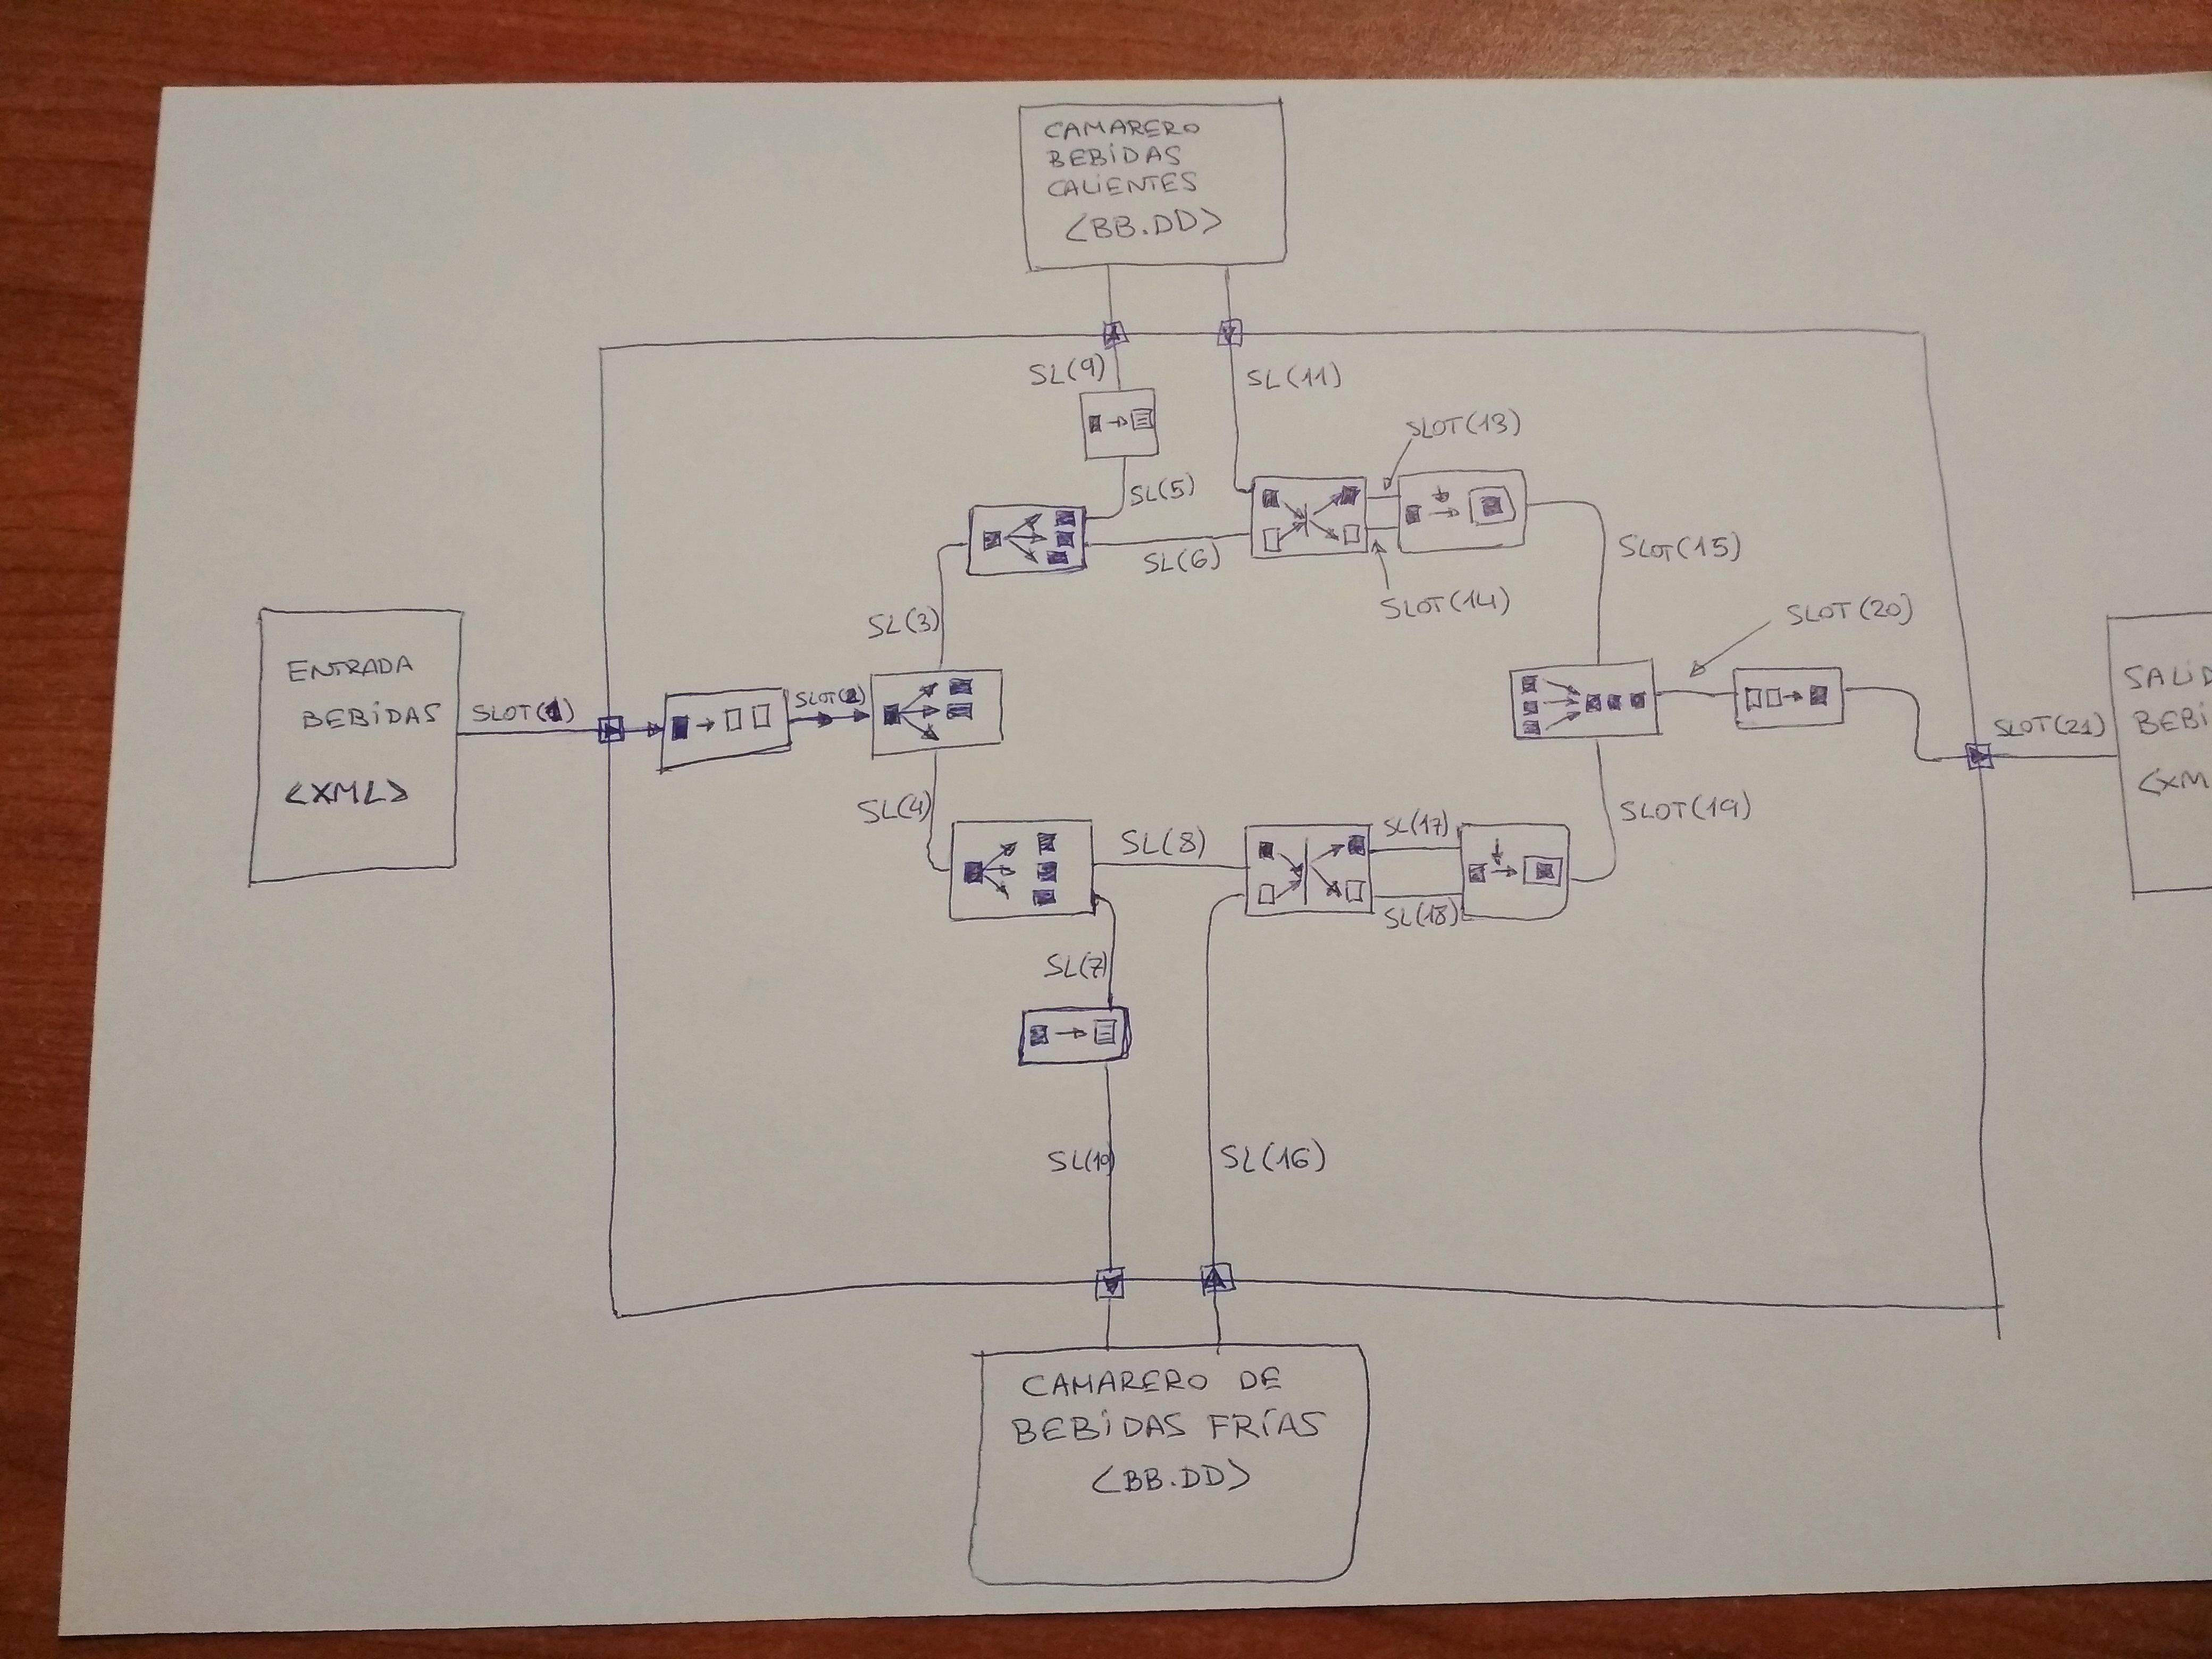 CAMARERO
BEBIDAS
CALIENTES
<BB.DD>
SL(9)
SL(11)
SLOT(13)
SL(5)
SL(6)
SLOT(14)
SLOT(15)
SL(3)
SLOT(20)
ENTRADA
BEBIDAS
<XML>
SLOT(1)
SLOT(2)
SLOT(21)
SALID
BEBI
<XM
SL(4)
SL(8)
SL(17)
SL(18)
SLOT(19)
SL(7)
SL(10)
SL(16)
CAMARERO DE
BEBIDAS FRÍAS
<BB.DD>